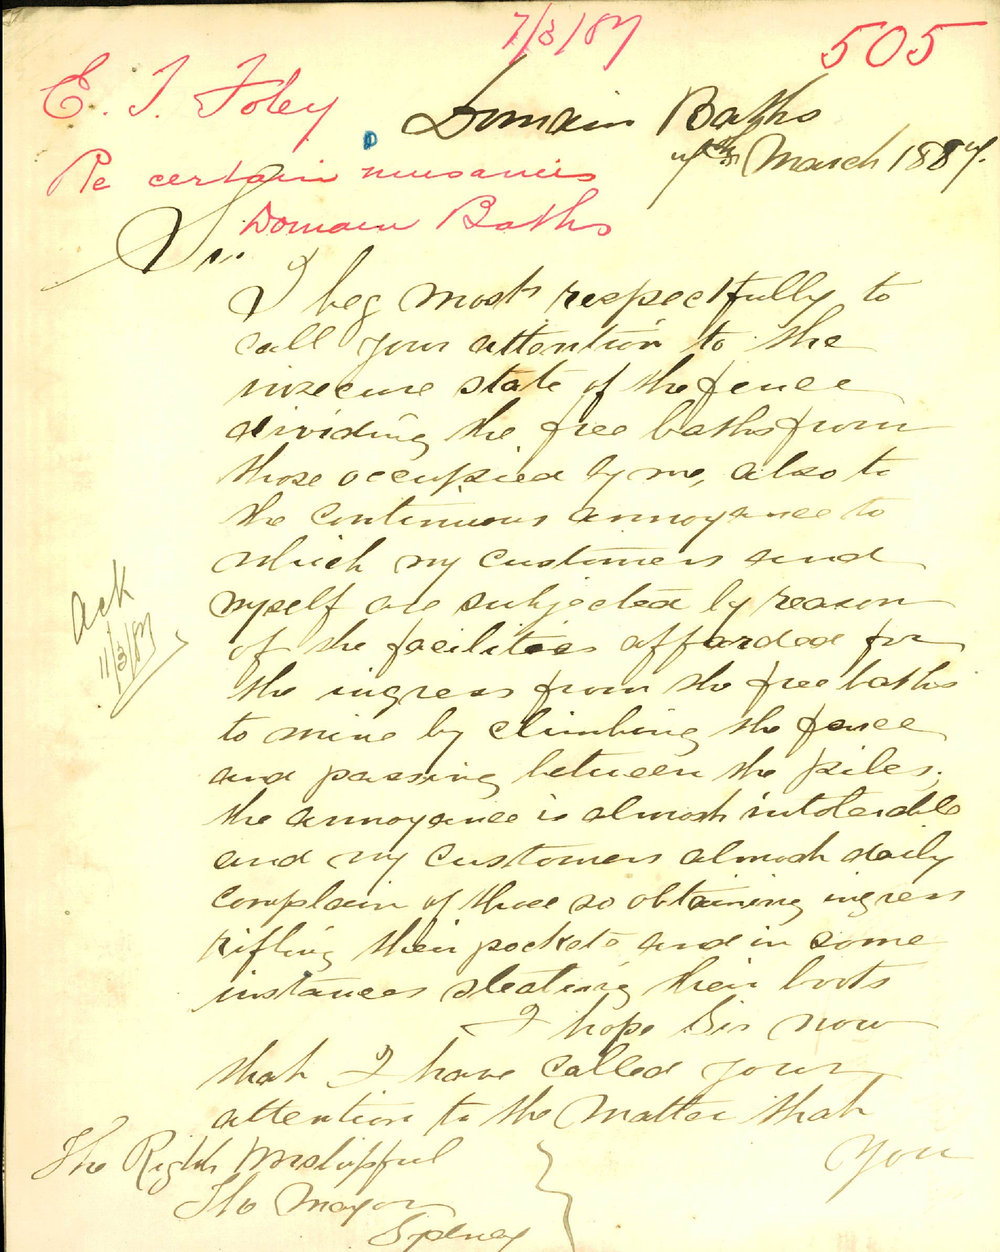 7/3/87
505
E. J. Foley
Domain Baths
7th March 1887.
Re certain nuisances
Domain Baths
Sir
I beg most respectfully to
call your attention to the
insecure state of the fence
dividing the free baths from
those occupied by me, also to
the continuous annoyance to
which my customers and
myself are subjected by reason
of the facilities afforded for
the ingress from the free baths
to mine by climbing the fence
and passing between the piles.
the annoyance is almost intolerable
and my customers almost daily
complain of those so obtaining ingress
rifling their pockets and in some
instances stealing their boots
I hope Sir now
that I have called your
attention to the matter that
you
Ack
11/3/87
The Right Worshipful
The Mayor
Sydney